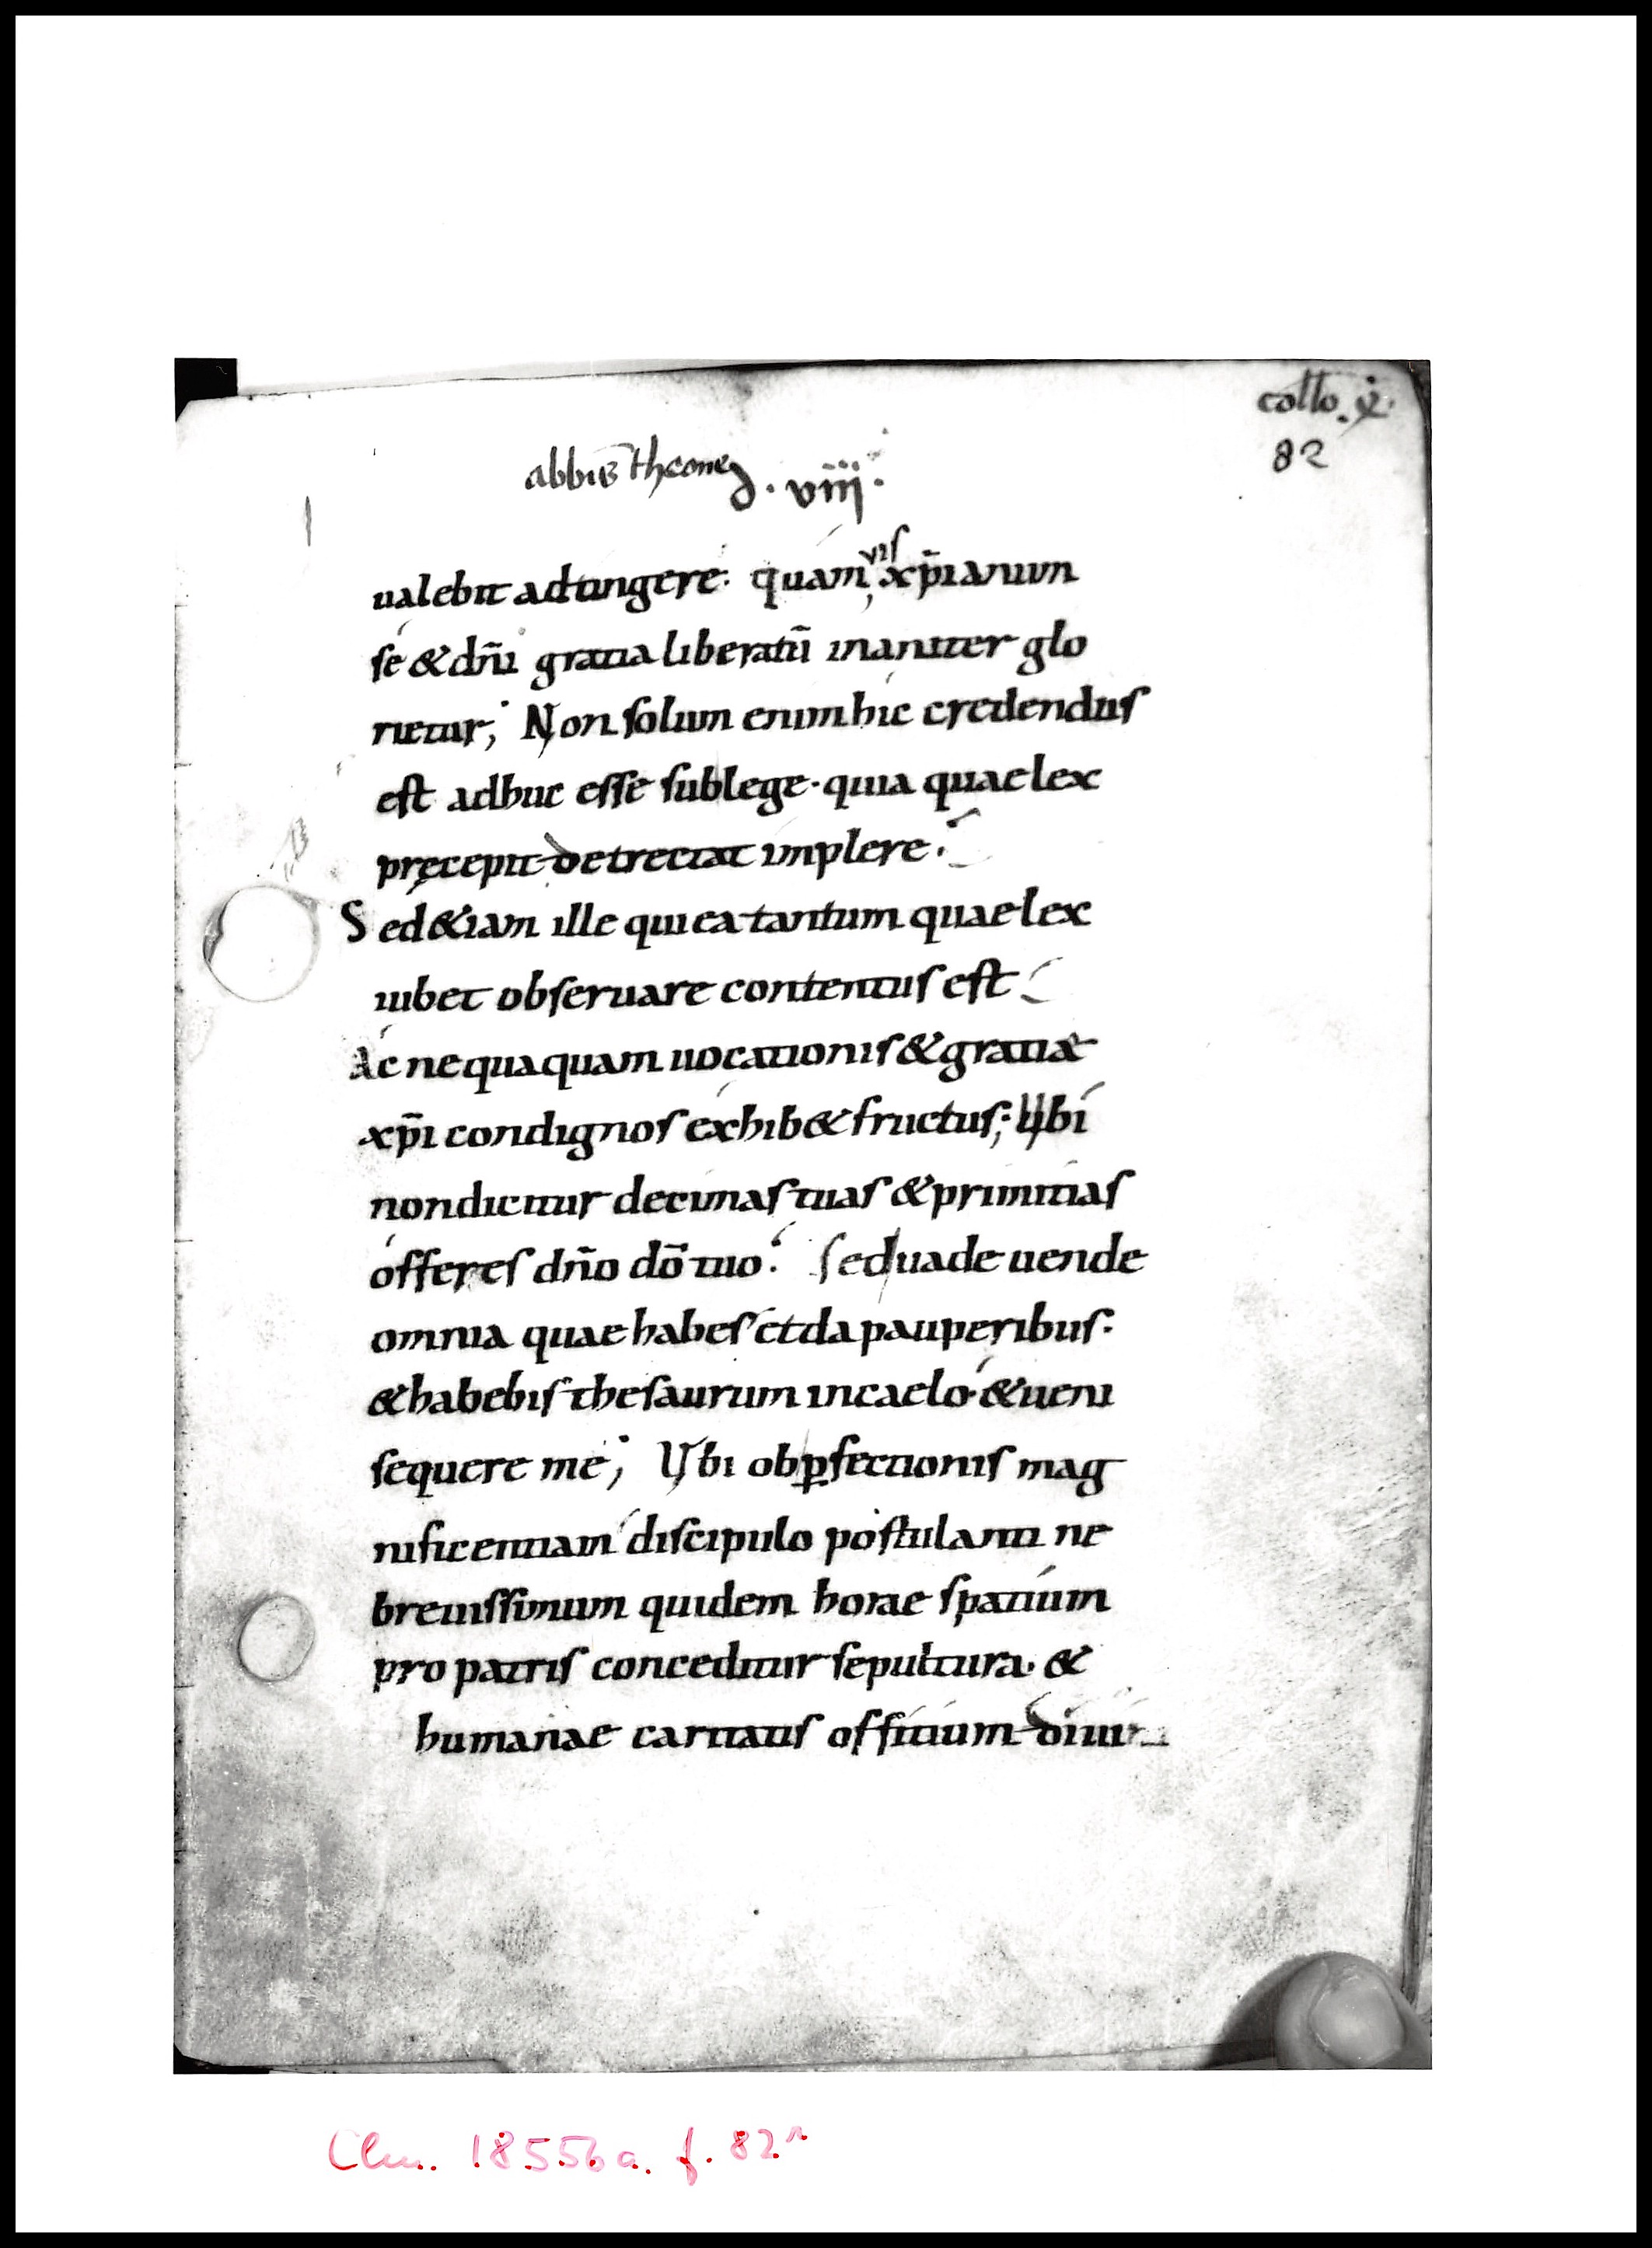 collo. x̣.
82
abbis̄ theone
d. viii.
ualebit adtingere: quam,uis xp̄ianum
se & dn̄i gratia liberatū inaniter glo
rietur; Non solum enim hic credendus
est adhuc esse sub lege. quia quae lex
pręcepit detrectat implere.
Sed &iam ille qui ea tantum quae lex
iubet obseruare contentus est
Ac nequaquam uocationis & gratiæ
xp̄i condignos exhib& fructus; Ubi
non dicitur decimas tuas & primitias
offeres dn̄o dō tuo. sed uade uende
omnia quae habes et da pauperibus:
& habebis thesaurum in caelo. & ueni
sequere me; Ubi ob ꝑfectionis mag
nificentiam discipulo postulanti ne
breuissimum quidem horae spatium
pro patris conceditur sepultura. &
humanae caritatis officium diui
Clm. 18556a. f. 82r